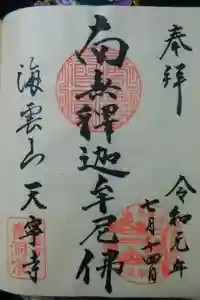 奉拝
令和元年
七月十四日
南無釋迦牟尼佛
海雲山天寧寺